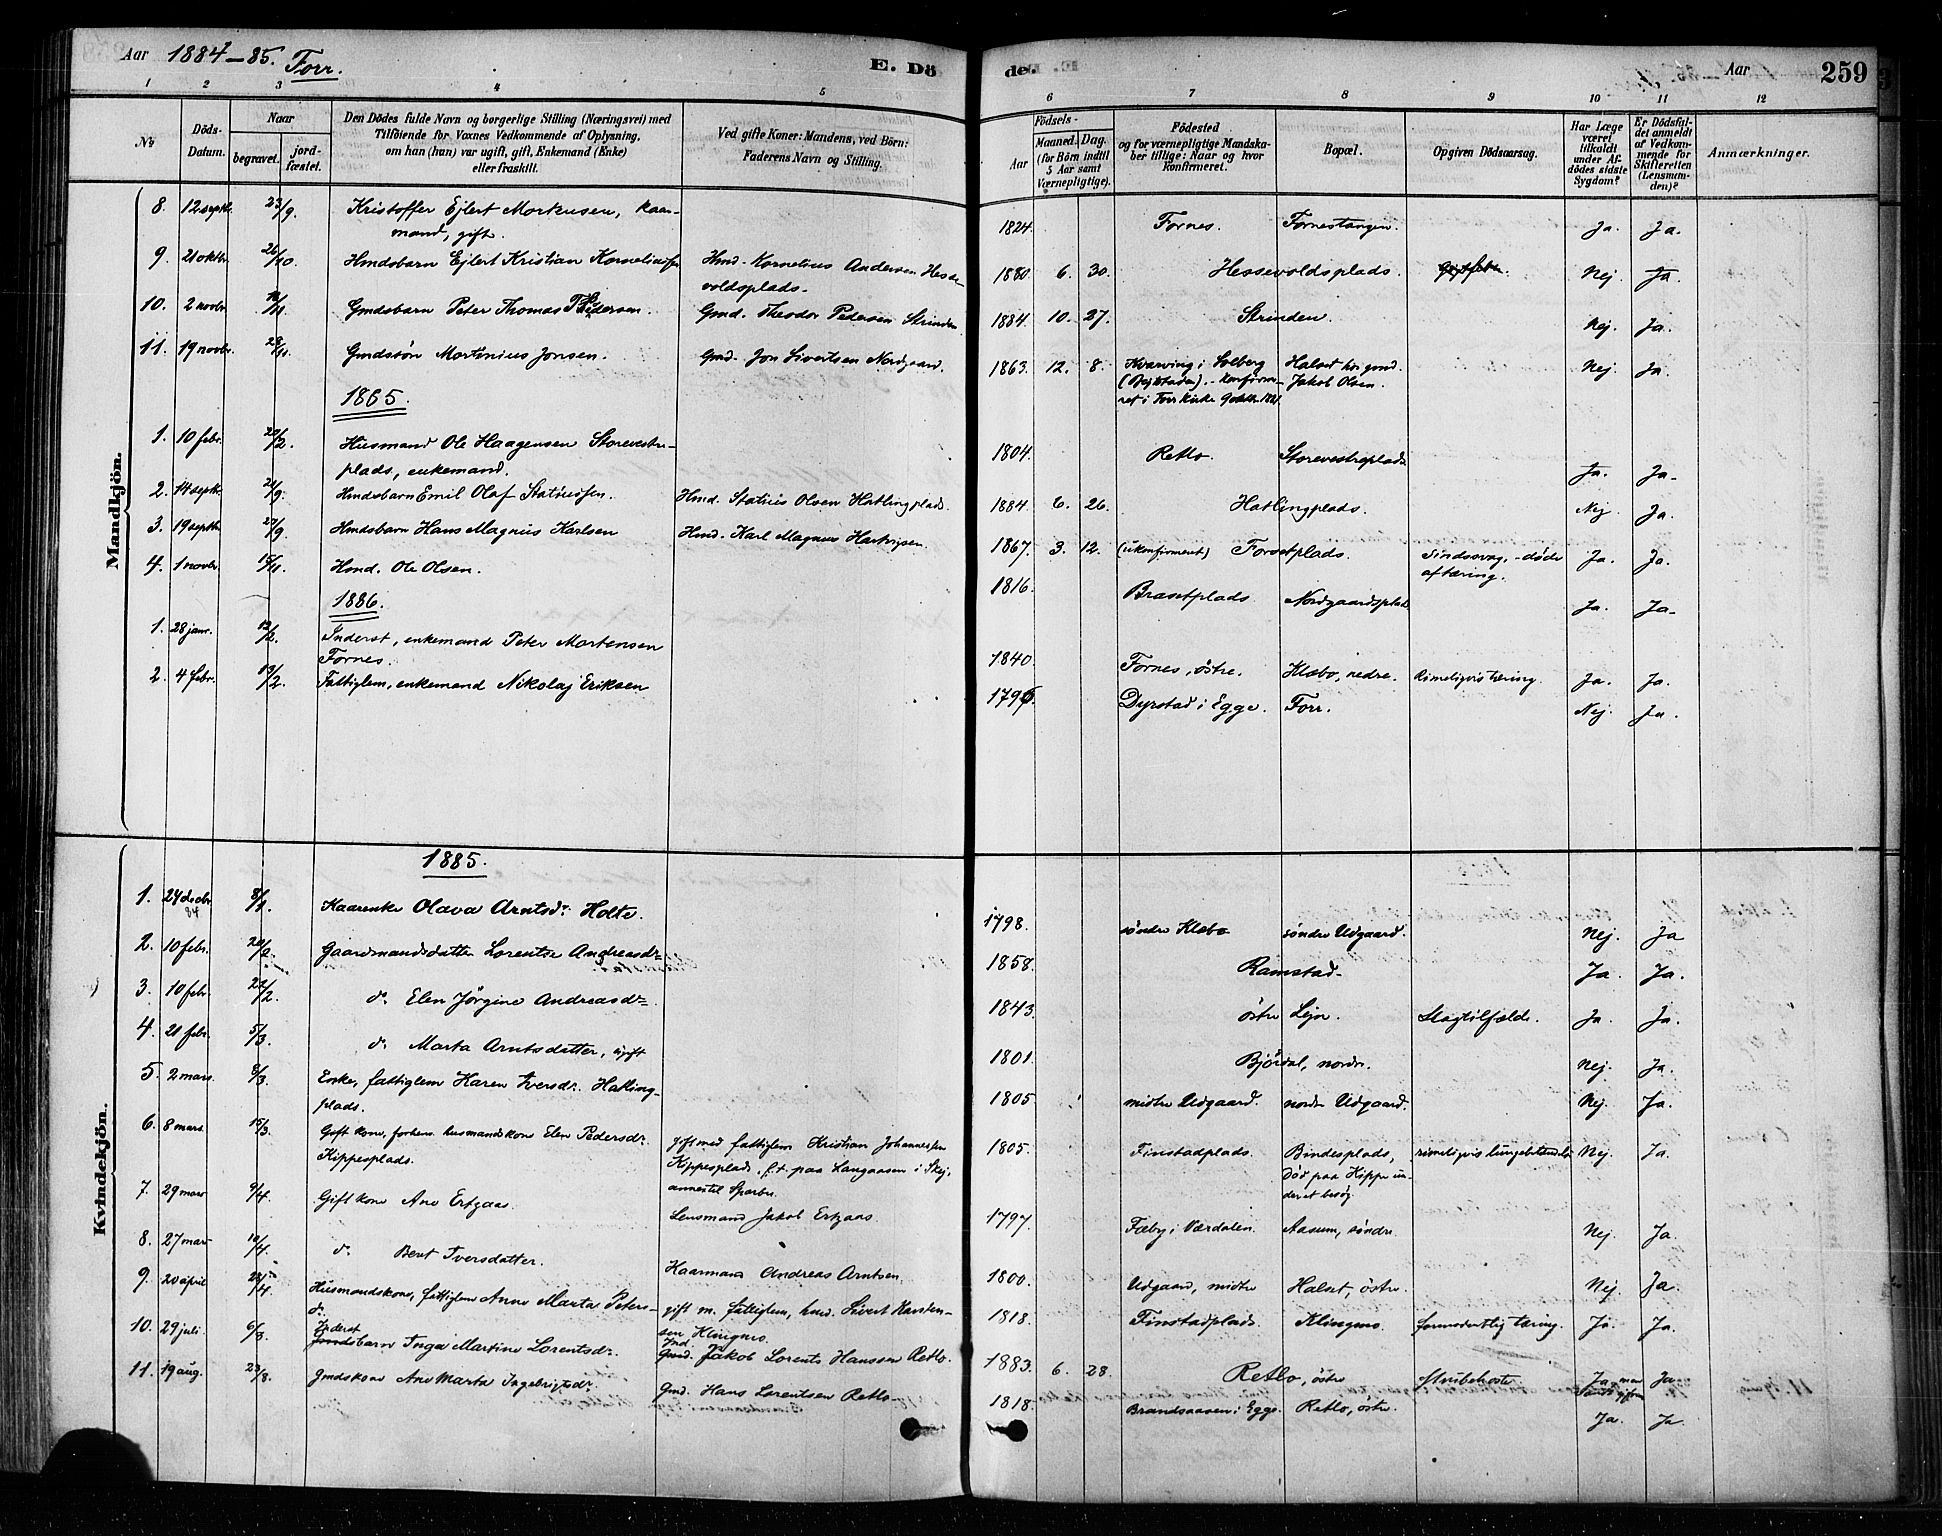 Aar 1884-85. Forr.
E. Dö
de.
Aar
259
1 2 3 4 5
6 7 8 9 10 11 12
No
Döds-Datum.
Naar
begravet.
jord-fæstet.
Den Dödes fulde Navn og borgerlige Stilling (Næringsvei) med
Tilföiende for Voxnes Vedkommende af Oplysning,
om han (hun) var ugift, gift, Enkemand (Enke)
eller fraskilt.
Ved gifte Koner: Mandens, ved Börn:
Faderens Navn og Stilling.
Födsels-
Aar
Maaned. Dag.
(for Börn indtil
5 Aar samt
Værnepligtige).
Födested
og for værnepligtige Mandska-
ber tillige: Naar og hvor
Konfirmeret.
Bopæl.
Opgiven Dödsaarsag.
Har Læge
været
tilkaldt
under Af-
dödes sidste
Sygdom?
Er Dödsfal-
det anmeldt
af Vedkom-
mende for
Skifteretten
(Lensman-
den)?
Anmærkninger.
Mandkjön.
8. 12 septbr. 23/9. Kristoffer Ejlert Mortensen, kaar-
mand, gift. 1824. Fornes. Fornestangen. Ja. Ja.
9. 21 oktbr. 26/10. Hmdsbarn Ejlert Kristian Korneliusen Hmd. Kornelius Andersen Hesse-
voldsplads. 1880. 6. 30. Hessevoldsplads. Nej Ja
10. 2 novbr. /11. Gmdsbarn Peter Thomas Pedersen. Gmd. Theodor Pedersen Strinden 1884. 10. 27. Strinden. Nej. Ja.
11. 19 novbr. 28/11. Gmdssön Martinius Jonsen. Gmd. Jon Sivertsen Nordgaard. 1863. 12. 8. Kvarving i Solberg
(Bejtstaden). - Konfirme-
ret i Forr kirke 9 oktbr. 1881. Halset hos gmd.
Jakob Olsen. Nej. Ja.
1885.
1. 10 febr. 20/2. Husmand Ole Haagensen Storevestre-
plads, enkemand. 1804. Retlo. Storevestreplads Ja. Ja.
2. 14 septbr. 21/9. Hmdsbarn Emil Olaf Statiusen. Hmd. Statius Olsen Hatlingplads. 1884. 6. 26. Hatlingplads. Nej. Ja.
3. 19 septbr. 27/9. Hmdsbarn Hans Magnus Karlsen Hmd. Karl Magnus Hartvigsen. 1867. 3. 12. (ukonfirmert) Forsetplads. Sindssvag, - døde
af tæring. Ja. Ja.
4. 1 novbr. 15/11. Hmd. Ole Olsen. 1816. Brasetplads Nordgaardsplads Ja. Ja.
1886.
1. 28 janr. 12/2. Inderst, enkemand Peter Mortensen
Fornes. 1840. Fornes, östre. Klæbo, nedre. Rimeligvis tæring. Ja. Ja.
2. 4 febr. 13/2. Fattiglem, enkemand Nikolaj Eriksen 1796. Dyrstad i Egge. Forr. Nej. Ja.
Kvindekjön.
1885.
1. 24 decbr. 84 8/1. Kaarenke Olava Arntsdr. Holte. 1798. söndre Klæbo söndre Udgaard. Nej. Ja
2. 10 febr. 20/2. Gaardmandsdatter Lorentse Andreasdr. 1858. Ramstad. Ja. Ja.
3. 10 febr. 22/2. do. Elen Jörgine Andreasdr. 1843. östre Lejn. Slagtilfælde. Ja. Ja.
4. 21 febr. 5/3. do. Marta Arntsdatter, ugift 1801. Björdal, nordre. Nej. Ja.
5. 2 mars. 8/3. Enke, fattiglem Karen Iversdr. Hatling-
plads. 1805. midtre Udgaard. nordre Udgaard. Nej. Ja.
6. 8 mars. 15/3. Gift kone, forhens. husmandskone Elen Pedersdr.
Kippesplads. gift med fattiglem Kristian Johannessen
Kippesplads, f.t. paa Langaasen i Skej,
annex til Sparbu. 1805. Finstadplads. Bindesplads,
död paa Kippe un-
der et besög. rimeligvis lungebetændelse Nej. Ja.
7. 29 mars 9/4. Gift kone Ane Ertzaas. Lensmand Jakob Ertzaas. 1797. Fæby i Værdalen. Aasum, söndre. Nej. Ja.
8. 27 mars 10/4. do. Beret Iversdatter. Kaarmand Andreas Arntsen. 1800. Udgaard, midtre Halset, östre. Nej. Ja.
9. 20 april 28/4. Husmandskone, fattiglem Anne Marta Peters-
dr. gift m. fattiglem, hmd. Sivert Karsten-
sen Klingmo. 1818. Finstadplads. Klingmo. formodentlig tæring. Ja. Ja.
10. 29 juli 6/8. Inderst
Gmdsbarn Inga Martine Lorentsdr. Ind.
Gmd. Jakob Lorents Hanssen Retlo. 1883. 6. 28. Retlo, östre Strubehoste Ja. Ja.
11. 19 aug. 23/8. Gmdskone Ane Marta Ingebrigtsdr. Gmd. Hans Lorentsen Retlo. 1818. Brandsaasen i Egge. Retlo, östre. Ja. Ja